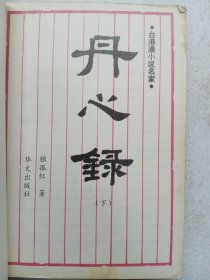 ●台港澳小说名家●
丹心録
（下）
独孤红 著
华文出版社